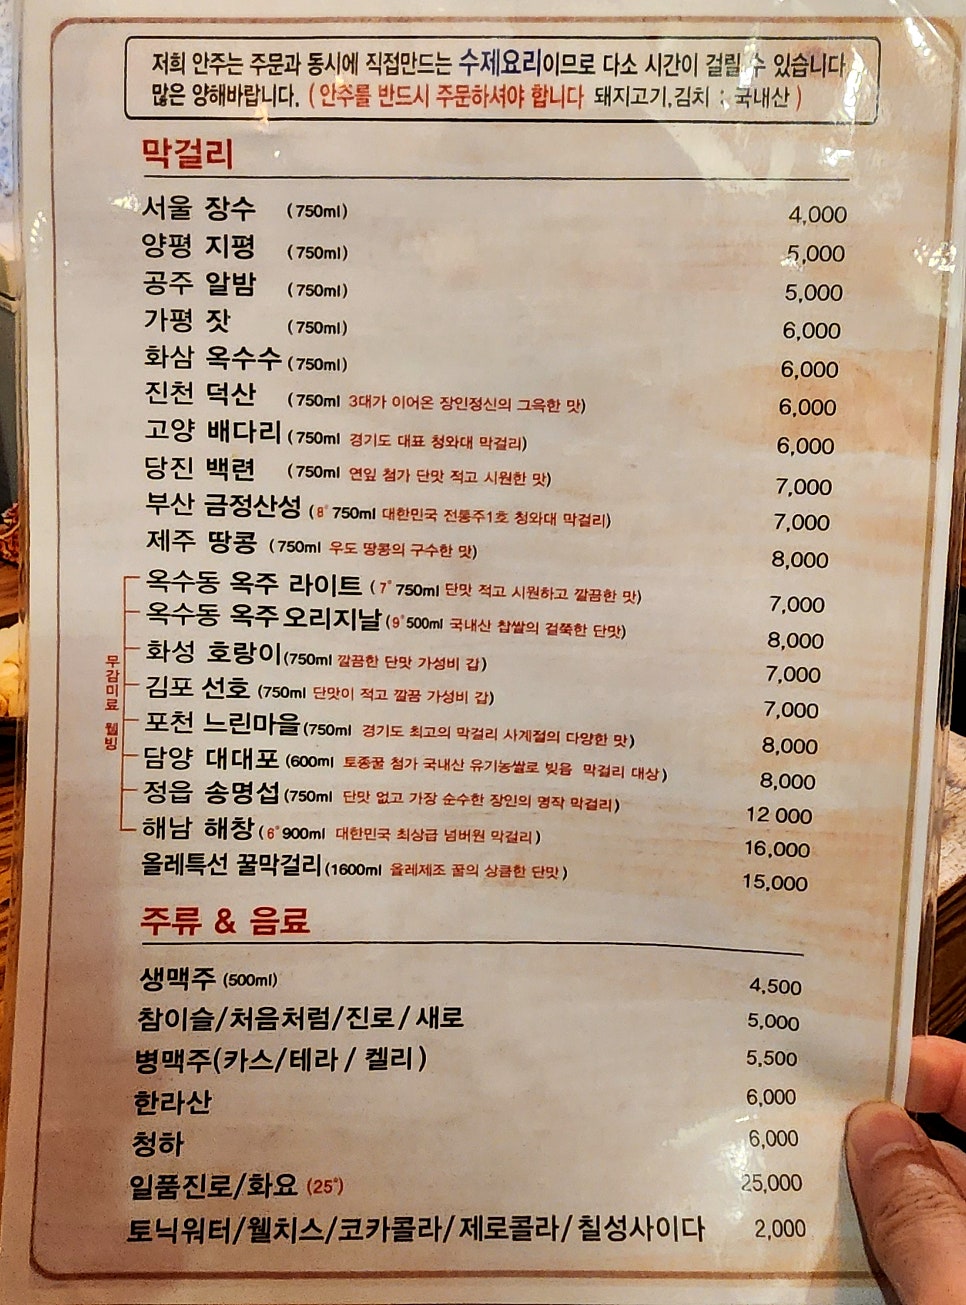 저희 안주는 주문과 동시에 직접만드는 수제요리이므로 다소 시간이 걸릴 수 있습니다.
많은 양해바랍니다. ( 안주를 반드시 주문하셔야 합니다 돼지고기,김치 : 국내산 )
막걸리
서울 장수 (750ml) 4,000
양평 지평 (750ml) 5,000
공주 알밤 (750ml) 5,000
가평 잣 (750ml) 6,000
화삼 옥수수 (750ml) 6,000
진천 덕산 (750ml 3대가 이어온 장인정신의 그윽한 맛) 6,000
고양 배다리 (750ml 경기도 대표 청와대 막걸리) 6,000
당진 백련 (750ml 연잎 첨가 단맛 적고 시원한 맛) 7,000
부산 금정산성 (8° 750ml 대한민국 전통주1호 청와대 막걸리) 7,000
제주 땅콩 (750ml 우도 땅콩의 구수한 맛) 8,000
무감미료 웰빙
옥수동 옥주 라이트 (7° 750ml 단맛 적고 시원하고 깔끔한 맛) 7,000
옥수동 옥주 오리지날 (9° 500ml 국내산 찹쌀의 걸쭉한 단맛) 8,000
화성 호랑이 (750ml 깔끔한 단맛 가성비 갑) 7,000
김포 선호 (750ml 단맛이 적고 깔끔 가성비 갑) 7,000
포천 느린마을 (750ml 경기도 최고의 막걸리 사계절의 다양한 맛) 8,000
담양 대대포 (600ml 토종꿀 첨가 국내산 유기농쌀로 빚음 막걸리 대상) 8,000
정읍 송명섭 (750ml 단맛 없고 가장 순수한 장인의 명작 막걸리) 12 000
해남 해창 (6° 900ml 대한민국 최상급 넘버원 막걸리) 16,000
올레특선 꿀막걸리 (1600ml 올레제조 꿀의 상큼한 단맛) 15,000
주류 & 음료
생맥주 (500ml) 4,500
참이슬/처음처럼/진로/새로 5,000
병맥주(카스/테라/ 켈리) 5,500
한라산 6,000
청하 6,000
일품진로/화요 (25°) 25,000
토닉워터/웰치스/코카콜라/제로콜라/칠성사이다 2,000